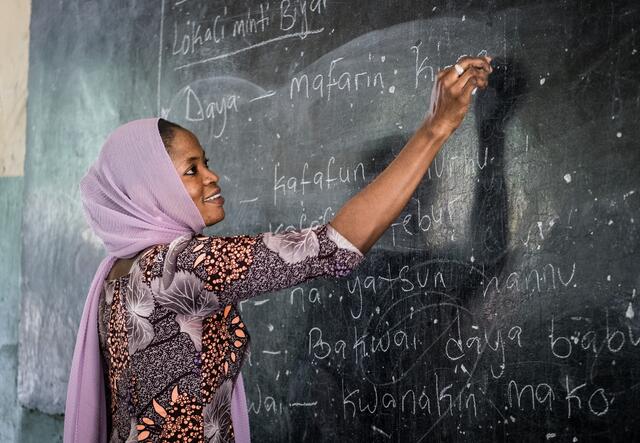 Lokaci minti Biyar
Daya – mafarin
– kafafun
tebur
na yatsun hannu
– Bakwai daya babu
wai – kwanakin mako